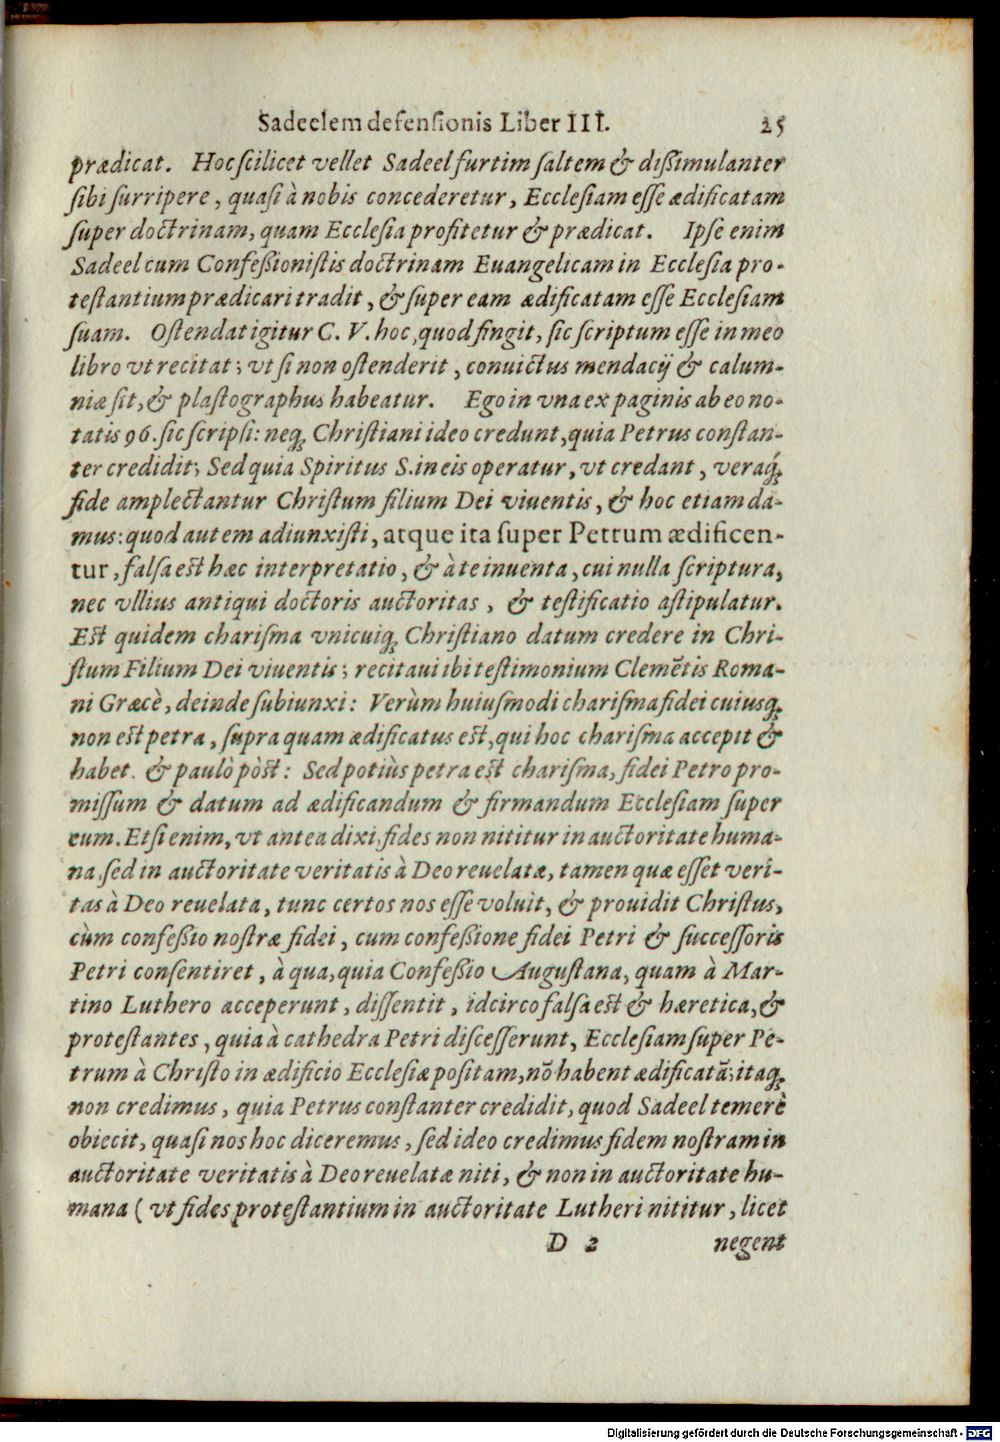 Sadeelem defensionis Liber III. 25
prædicat. Hoc scilicet vellet Sadeel furtim saltem & dißimulanter
sibi surripere, quasi à nobis concederetur, Ecclesiam esse ædificatam
super doctrinam, quam Ecclesia profitetur & prædicat. Ipse enim
Sadeel cum Confeßionistis doctrinam Euangelicam in Ecclesia pro-
testantium prædicari tradit, & super eam ædificatam esse Ecclesiam
suam. Ostendat igitur C. V. hoc, quod fingit, sic scriptum esse in meo
libro vt recitat; vt si non ostenderit, conuictus mendacij & calum-
niæ sit, & plastographus habeatur. Ego in vna ex paginis ab eo no-
tatis 96. sic scripsi: neq; Christiani ideo credunt, quia Petrus constan-
ter credidit; Sed quia Spiritus S. in eis operatur, vt credant, veraq́;
fide amplectantur Christum filium Dei viuentis, & hoc etiam da-
mus: quod autem adiunxisti, atque ita super Petrum ædificen-
tur, falsa est hæc interpretatio, & à te inuenta, cui nulla scriptura,
nec vllius antiqui doctoris auctoritas, & testificatio astipulatur.
Est quidem charisma vnicuiq; Christiano datum credere in Chri-
stum Filium Dei viuentis; recitaui ibi testimonium Clemētis Roma-
ni Græcè, deinde subiunxi: Verùm huiusmodi charisma fidei cuiusq;
non est petra, supra quam ædificatus est, qui hoc charisma accepit &
habet. & paulò pòst: Sed potiùs petra est charisma, fidei Petro pro-
missum & datum ad ædificandum & firmandum Ecclesiam super
eum. Etsi enim, vt antea dixi, fides non nititur in auctoritate huma-
na, sed in auctoritate veritatis à Deo reuelatæ, tamen quæ esset veri-
tas à Deo reuelata, tunc certos nos esse voluit, & prouidit Christus,
cùm confeßio nostræ fidei, cum confeßione fidei Petri & successoris
Petri consentiret, à qua, quia Confeßio Augustana, quam à Mar-
tino Luthero acceperunt, dissentit, idcirco falsa est & hæretica, &
protestantes, quia à cathedra Petri discesserunt, Ecclesiam super Pe-
trum à Christo in ædificio Ecclesiæ positam, nō habent ædificatā; itaq;
non credimus, quia Petrus constanter credidit, quod Sadeel temerè
obiecit, quasi nos hoc diceremus, sed ideo credimus fidem nostram in
auctoritate veritatis à Deo reuelatæ niti, & non in auctoritate hu-
mana ( vt fides protestantium in auctoritate Lutheri nititur, licet
D 2 negent
Digitalisierung gefördert durch die Deutsche Forschungsgemeinschaft - DFG